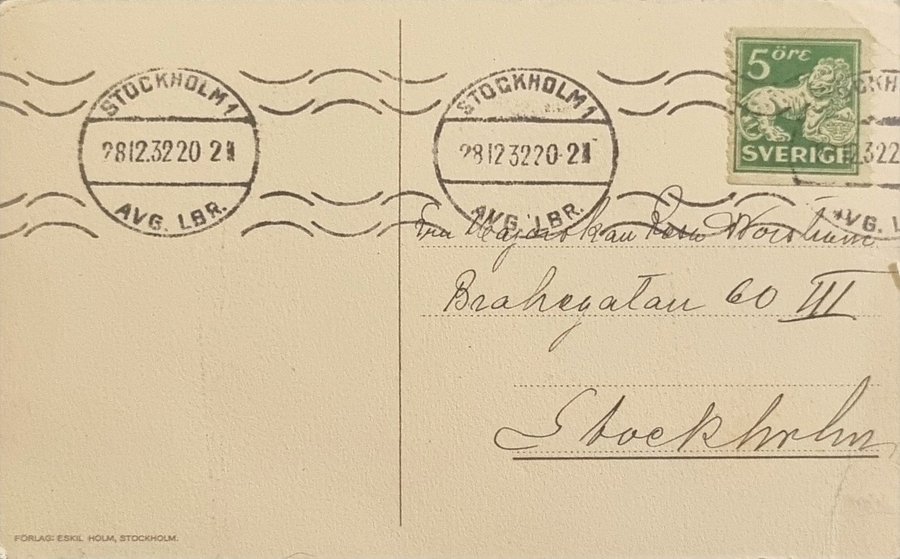 STOCKHOLM 1
28 12.32 20-21
AVG. LBR.
STOCKHOLM 1
28 12.32 20-21
AVG. LBR.
5 öre
SVERIGE
Fru Majorskan Rosa Norström
Brahegatan 60 III
Stockholm
FÖRLAG: ESKIL HOLM, STOCKHOLM.